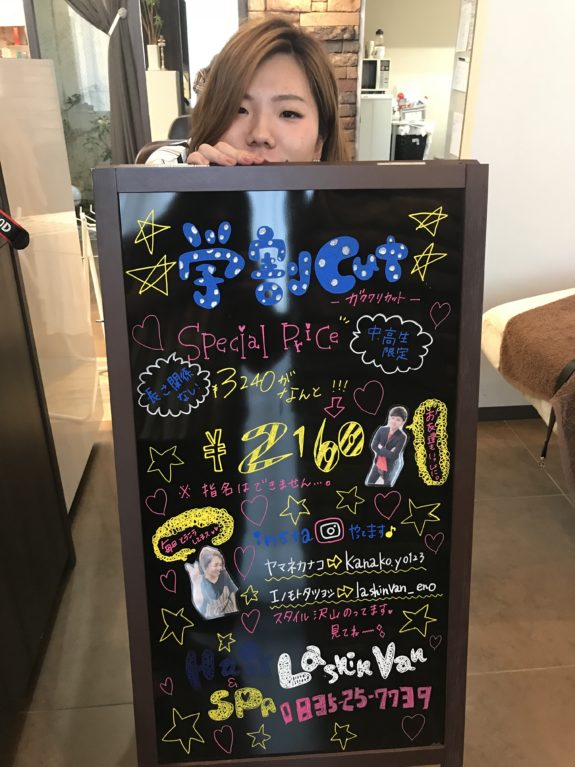 学割Cut
ーガクワリカットー
Special Price
中高生
限定
長さ関係
なし
¥3240が
なんと!!!
¥2160
お友達といっしょに。
※指名はできません…。
insta やってます♪
ヤマネカナコ⇨Kanako.yo123
エノモトタツヨシ⇨lashinVan_eno
スタイル沢山のってます。
見てねー。
Hair
&
Spa
Lashin Van
0835-25-7739